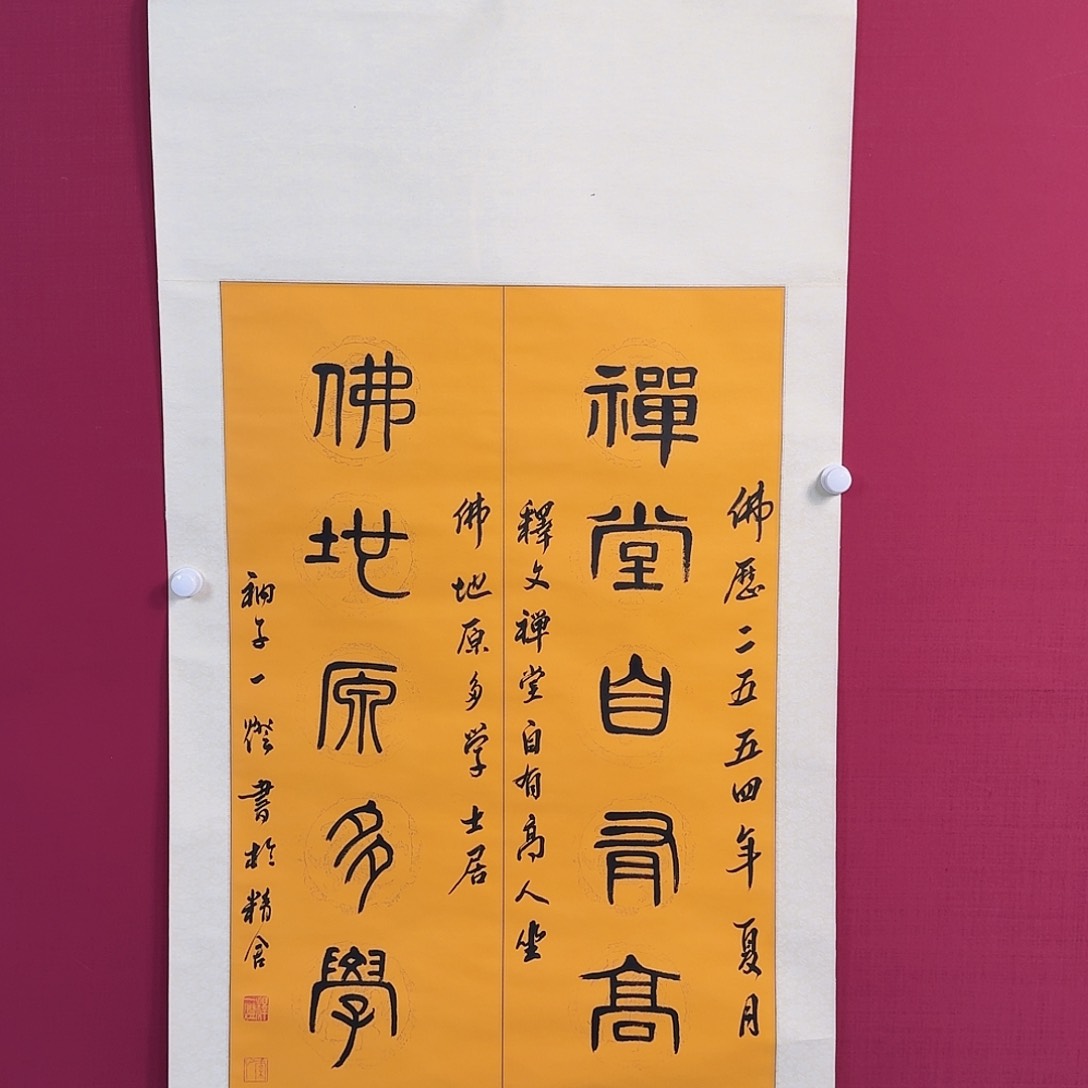 佛歷二五五四年夏月
禪堂自有高
釋文禅堂自有高人坐
佛地原多学士居
佛地原多學
衲子一燈書於精舍